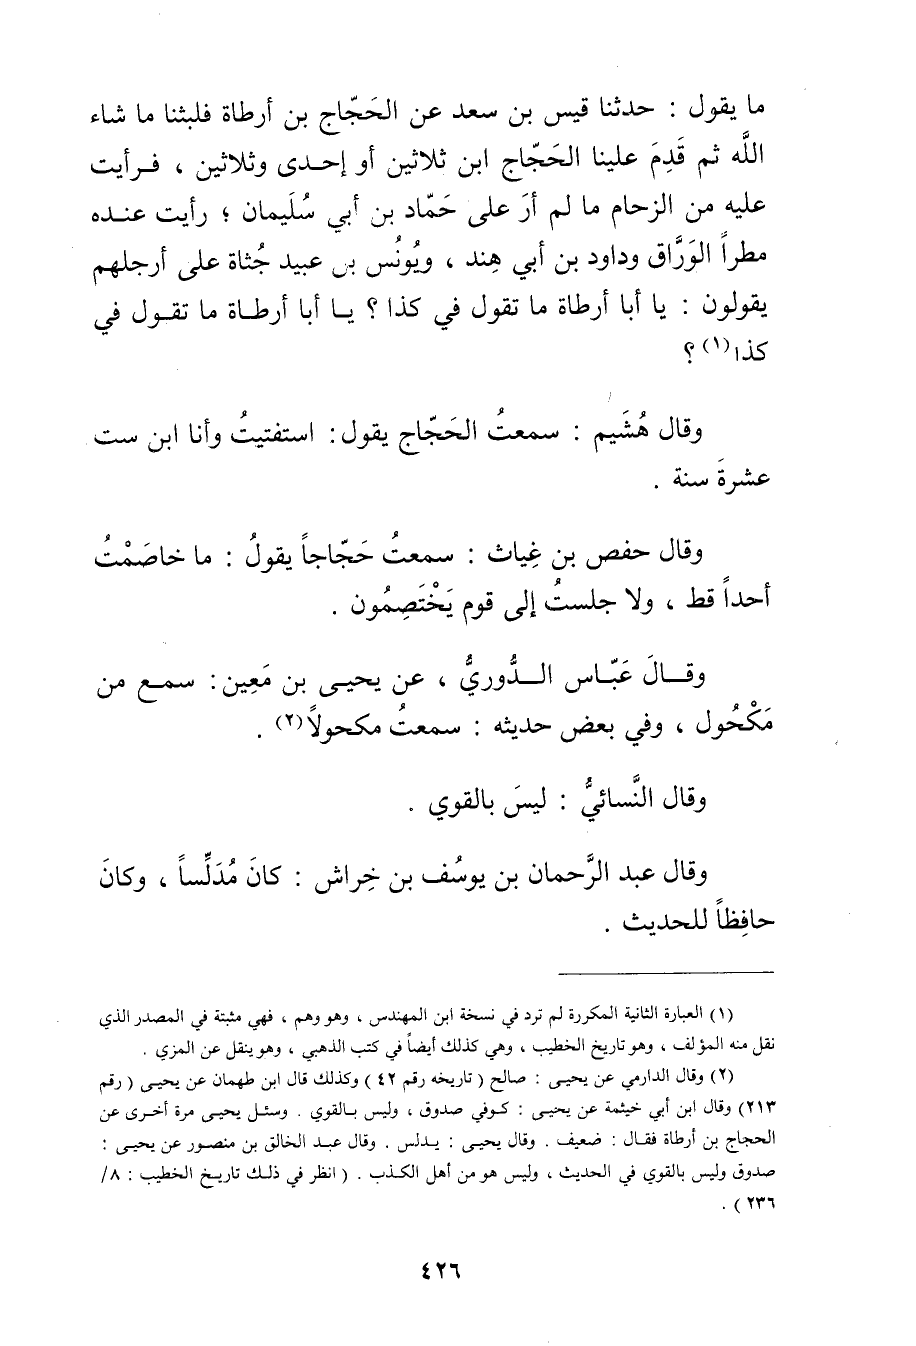 ما يقول : حدثنا قيس بن سعد عن الحَجّاج بن أرطاة فلبثنا ما شاء
اللَّه ثم قَدِمَ علينا الحَجّاج ابن ثلاثين أو إحـدى وثلاثين ، فـرأيت
عليه من الزحام ما لم أرَ على حَمّاد بن أبي سُلَيمان ؛ رأيت عنـده
مطراً الوَرَّاق وداود بن أبي هِند ، ويُونُس بن عبيد جُثاة على أرجلهم
يقولون : يا أبا أرطاة ما تقول في كذا ؟ يـا أبا أرطـاة ما تقـول في
كذا(١) ؟
وقال هُشَيم : سمعتُ الحَجّاج يقول: استفتيتُ وأنا ابن ست
عشرةَ سنة .
وقال حفص بن غِياث : سمعتُ حَجّاجاً يقولُ : ما خاصَمْتُ
أحداً قط ، ولا جلستُ إلى قوم يَخْتَصِمُون .
وقـالَ عَبّـاس الـدُّوريُّ ، عن يحيـى بن مَعِين: سمـع من
مَكْحُول ، وفي بعض حديثه : سمعتُ مكحولاً(٢) .
وقال النَّسائيُّ : ليسَ بالقوي .
وقال عبد الرَّحمان بن يوسُف بن خِراش : كانَ مُدَلِّساً ، وكانَ
حافِظاً للحديث .
(١) العبارة الثانية المكررة لم ترد في نسخة ابن المهندس ، وهو وهم ، فهي مثبتة في المصدر الذي
نقل منه المؤلف ، وهو تاريخ الخطيب ، وهي كذلك أيضاً في كتب الذهبي ، وهو ينقل عن المزي .
(٢) وقال الدارمي عن يحيـى : صالح ( تاريخه رقم ٤٢ ) وكذلك قال ابن طهمان عن يحيـى ( رقم
٢١٣) وقال ابن أبي خيثمة عن يحيـى : كـوفي صدوق ، وليس بـالقوي . وسئـل يحيـى مرة أخـرى عن
الحجاج بن أرطأة فقـال : ضعيف . وقال يحيـى : يـدلس . وقال عبـد الخالق بن منصـور عن يحيـى :
صدوق وليس بالقوي في الحديث ، وليس هو من أهل الكـذب . ( انظر في ذلـك تاريـخ الخطيب : ٨/
٢٣٦ ) .
٤٢٦